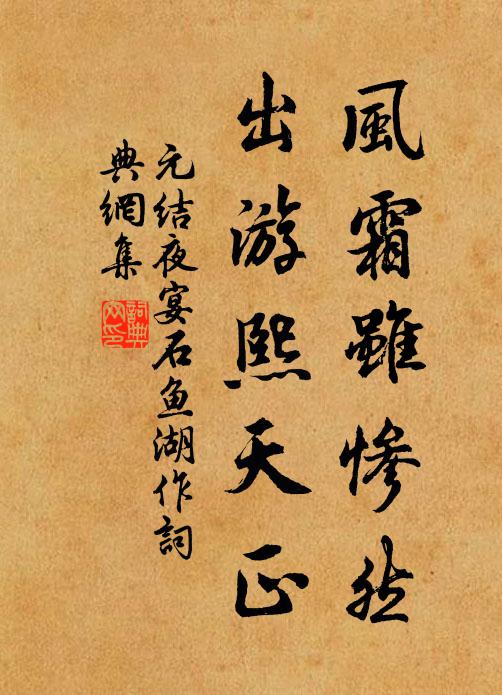 風霜雖慘然
出游熙天正
元結夜宴石魚湖作詞
典網集
詞典
網印